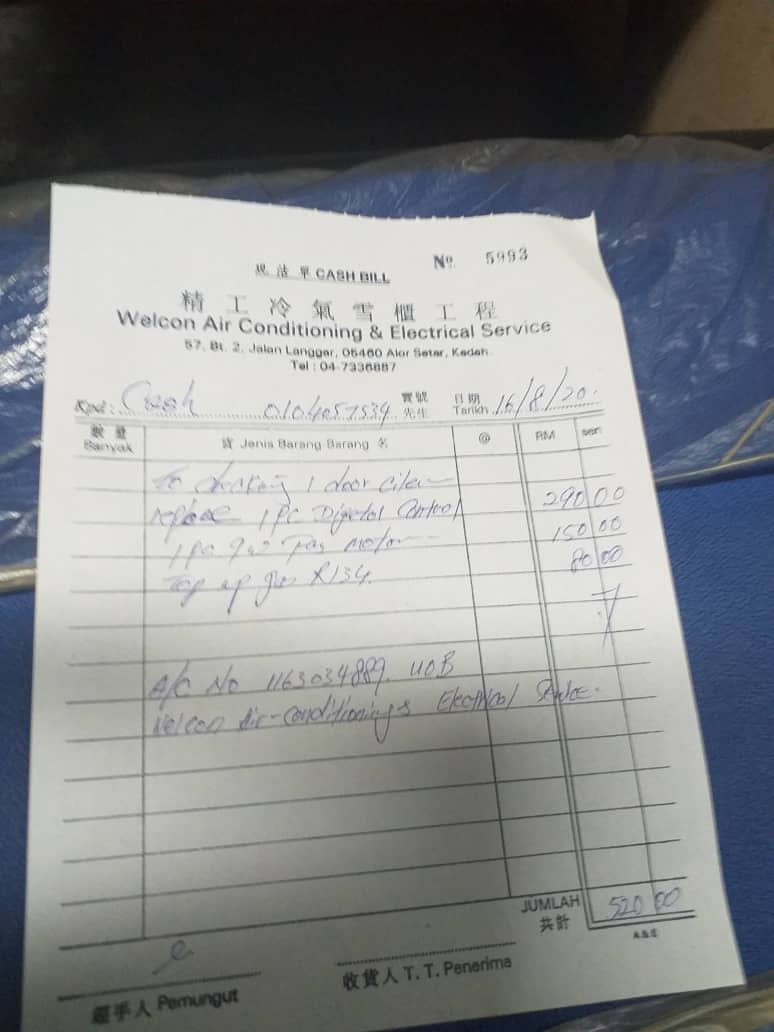 現沽單 CASH BILL
Nº 5993
精工冷氣雪櫃工程
Welcon Air Conditioning & Electrical Service
57, Bt. 2, Jalan Langgar, 05460 Alor Setar, Kedah.
Tel : 04-7336887
Kpd : Cash 0104057534 寶號 先生 日期 Tarikh 16/8/20.
數量 Banyak 貨 Jenis Barang-Barang 名 @ RM sen
To checking 1 door
replace 1 PC Digetal Control 290 00
1 pc Fan motor 150 00
Top up gas R134. 80 00
A/C No 1163034889. UOB
Welcon Air-conditioning & Electrical Service.
JUMLAH 共計 520 00
經手人 Pemungut
收貨人 T. T. Penerima